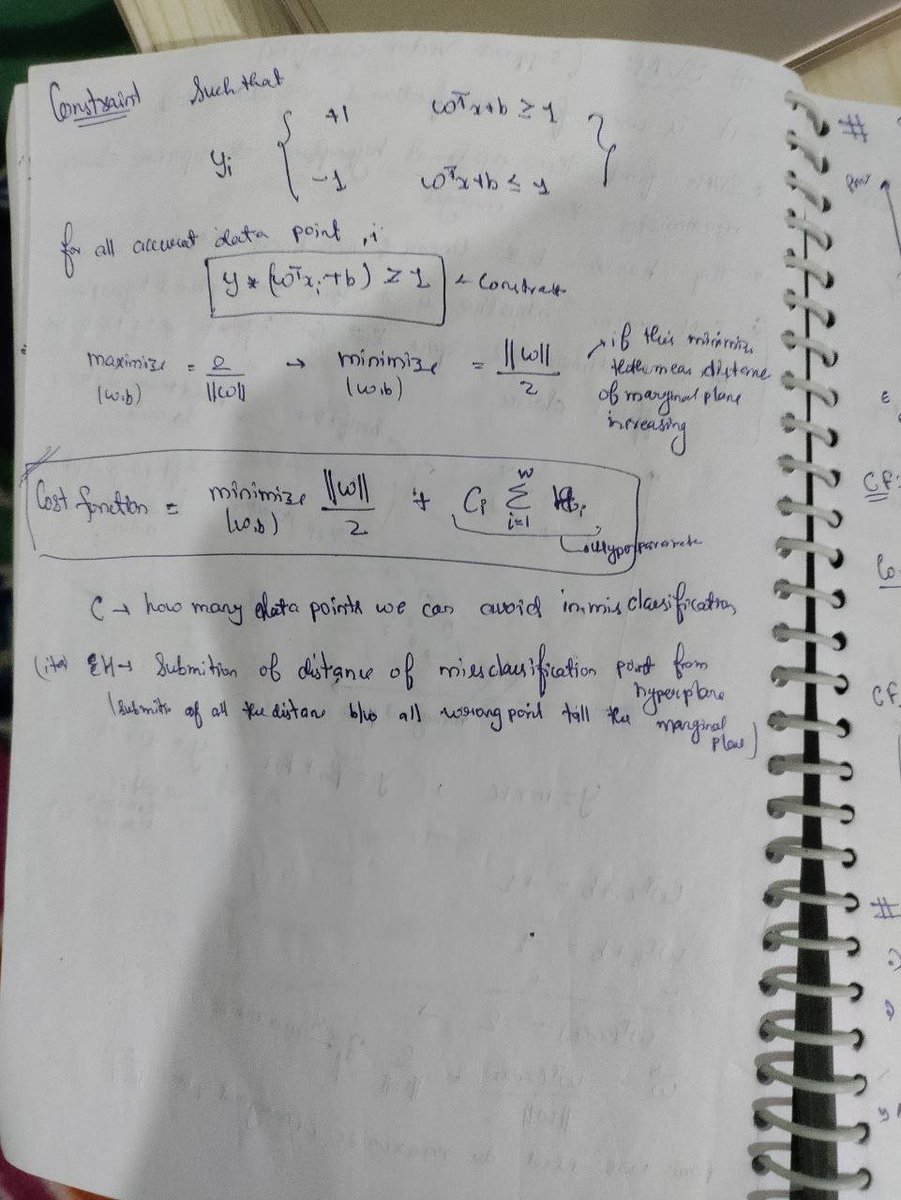 Constraint Such that
yi { +1 ωᵀx+b ≥ 1 }
-1 ωᵀx+b ≤ 1
for all accurat data point, i
y * (ωᵀxi+b) ≥ 1 ← Constrate
maximize (ω,b) = 2/||ω|| → minimize (ω,b) = ||ω||/2
if this minimize
mean distane
of marginal plane
increasing
Cost function = minimize (ω,b) ||ω||/2 + Ci Σ i=1
Hyperparamete
C → how many data points we can avoid in misclassification
(ita) → Submition of distance of missclassification point from
hyperplane
(submitn of all the distan b/w all wrong point till the marginal
plane)
#
CF:
Co
CF
#